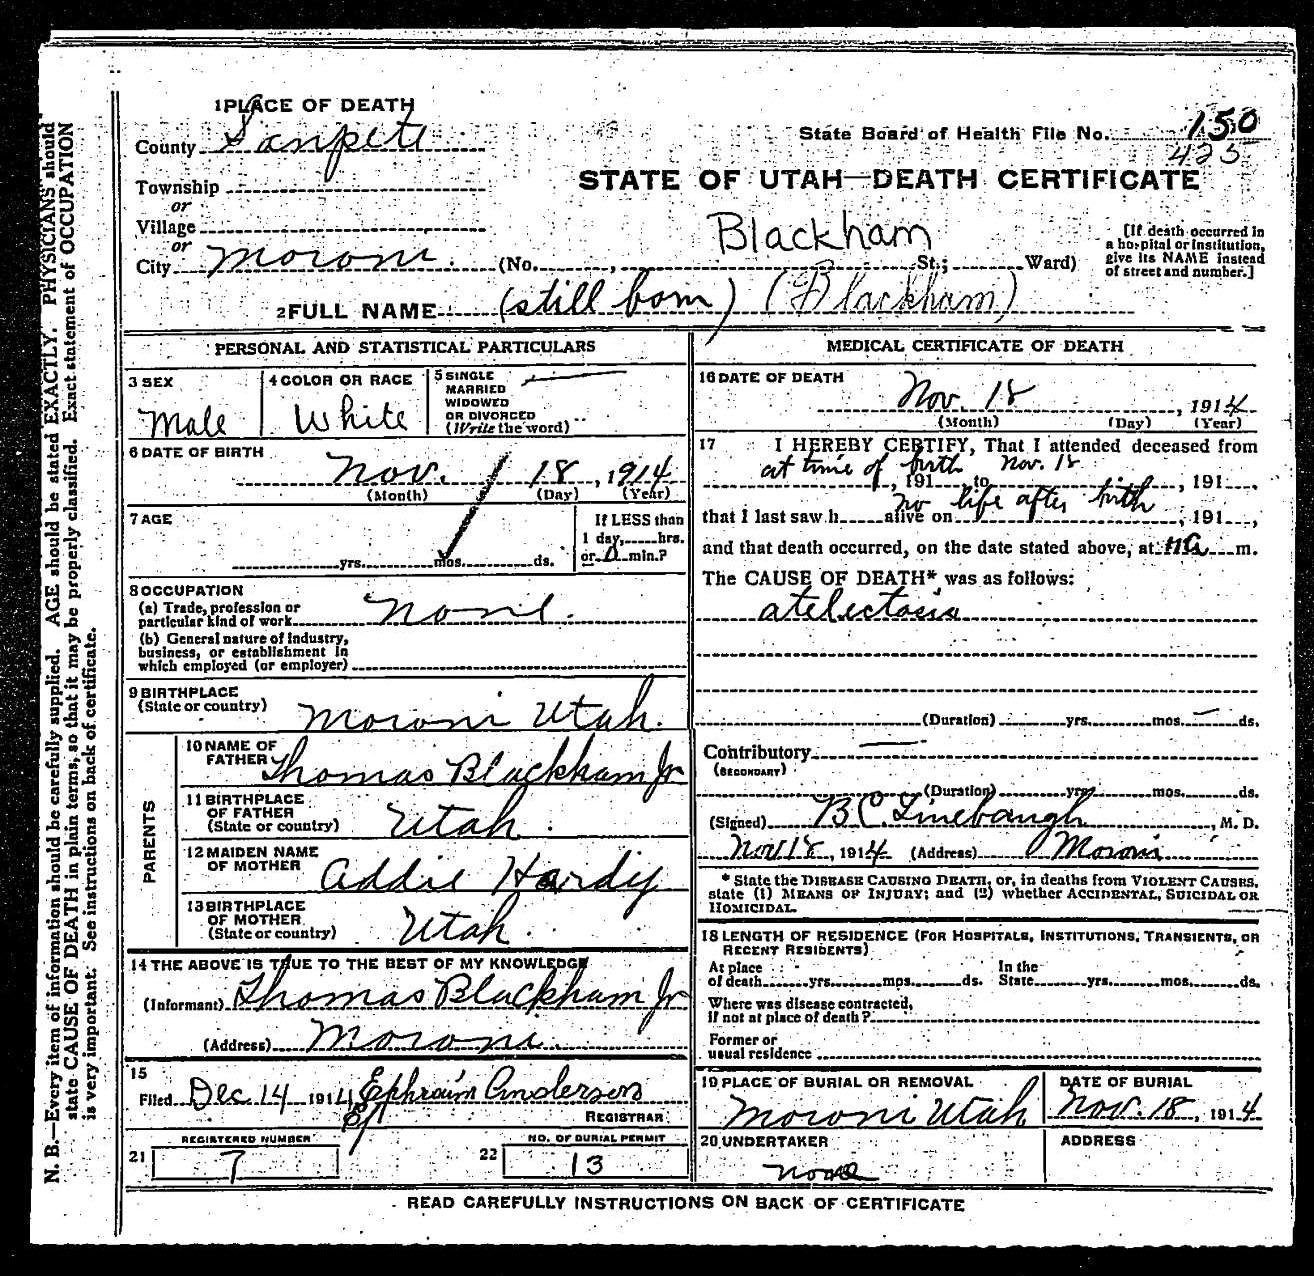 N. B.—Every item of information should be carefully supplied. AGE should be stated EXACTLY. PHYSICIANS should
state CAUSE OF DEATH in plain terms, so that it may be properly classified. Exact statement of OCCUPATION
is very important. See instructions on back of certificate.
1 PLACE OF DEATH
County Sanpete
State Board of Health File No. 150
423
Township
STATE OF UTAH—DEATH CERTIFICATE
or
Village
or
Blackham
City Moroni (No. , St.; Ward)
[If death occurred in
a hospital or institution,
give its NAME instead
of street and number.]
2 FULL NAME (still born) (Blackham)
PERSONAL AND STATISTICAL PARTICULARS
3 SEX
Male
4 COLOR OR RACE
White
5 SINGLE
MARRIED
WIDOWED
OR DIVORCED
(Write the word)
6 DATE OF BIRTH
Nov. 18, 1914
(Month) (Day) (Year)
7 AGE
yrs. mos. ds.
If LESS than
1 day, hrs.
or 0 min.?
8 OCCUPATION
(a) Trade, profession or
particular kind of work none.
(b) General nature of industry,
business, or establishment in
which employed (or employer)
9 BIRTHPLACE
(State or country)
Moroni Utah.
PARENTS
10 NAME OF
FATHER Thomas Blackham Jr
11 BIRTHPLACE
OF FATHER
(State or country) Utah.
12 MAIDEN NAME
OF MOTHER Addie Hardy
13 BIRTHPLACE
OF MOTHER
(State or country) Utah.
14 THE ABOVE IS TRUE TO THE BEST OF MY KNOWLEDGE
(Informant) Thomas Blackham Jr
(Address) Moroni.
15
Filed Dec 14 1914 Ephraim Anderson
REGISTRAR
REGISTERED NUMBER
21 7
NO. OF BURIAL PERMIT
22 13
MEDICAL CERTIFICATE OF DEATH
16 DATE OF DEATH
Nov. 18, 1914
(Month) (Day) (Year)
17 I HEREBY CERTIFY, That I attended deceased from
at time of birth Nov. 18
, 191 to , 191 ,
no life after birth
that I last saw h alive on , 191 ,
and that death occurred, on the date stated above, at m.
The CAUSE OF DEATH* was as follows:
atelectasis
(Duration) yrs. mos. — ds.
Contributory —
(SECONDARY)
(Duration) yrs. mos. ds.
(Signed) B C. Linebaugh, M. D.
Nov 18, 1914 (Address) Moroni
* State the DISEASE CAUSING DEATH, or, in deaths from VIOLENT CAUSES,
state (1) MEANS OF INJURY; and (2) whether ACCIDENTAL, SUICIDAL OR
HOMICIDAL.
18 LENGTH OF RESIDENCE (FOR HOSPITALS, INSTITUTIONS, TRANSIENTS, OR
RECENT RESIDENTS)
At place
of death yrs. mos. ds.
In the
State yrs. mos. ds.
Where was disease contracted,
if not at place of death?
Former or
usual residence
19 PLACE OF BURIAL OR REMOVAL
Moroni Utah
DATE OF BURIAL
Nov. 18, 1914
20 UNDERTAKER
none
ADDRESS
READ CAREFULLY INSTRUCTIONS ON BACK OF CERTIFICATE